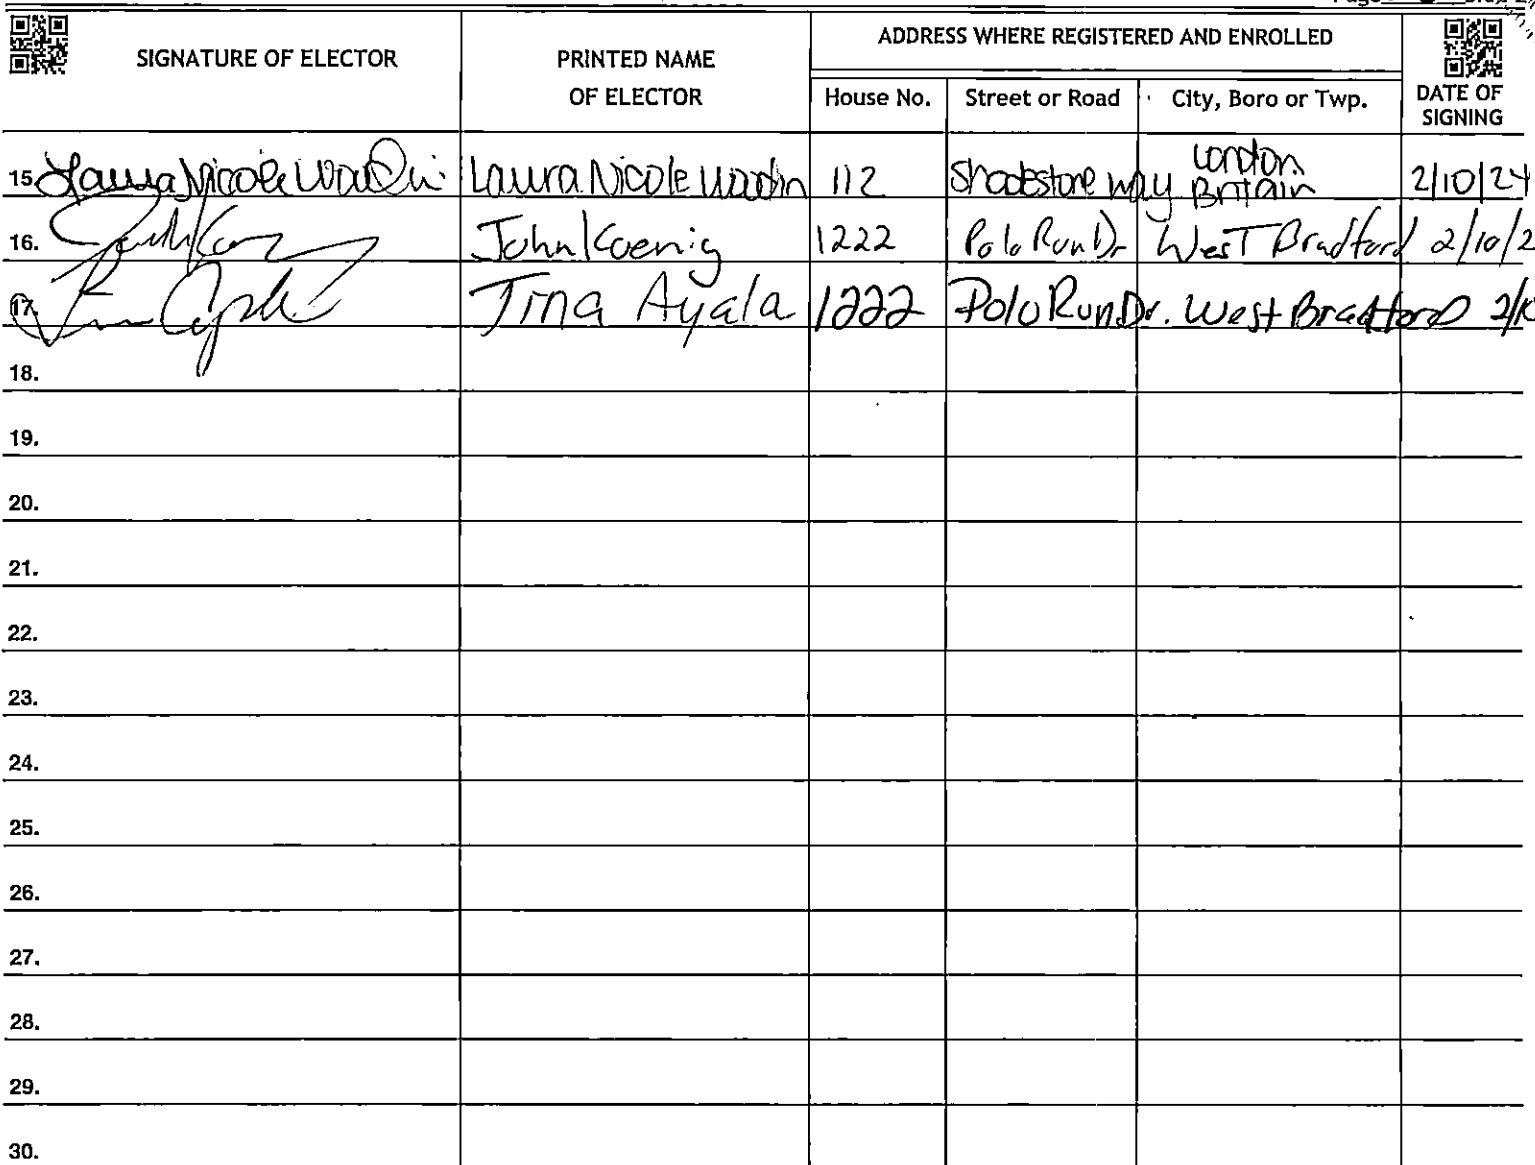 SIGNATURE OF ELECTOR
PRINTED NAME
OF ELECTOR
ADDRESS WHERE REGISTERED AND ENROLLED
House No.
Street or Road
City, Boro or Twp.
DATE OF
SIGNING
15. Laura Nicole Laura Nicole 112 way London Britain 2/10/24
16. John Koenig 1222 Polo Run Dr West Bradford 2/10/2
17. Tina Ayala 1222 Polo Run Dr. West Bradford 2/10
18.
19.
20.
21.
22.
23.
24.
25.
26.
27.
28.
29.
30.